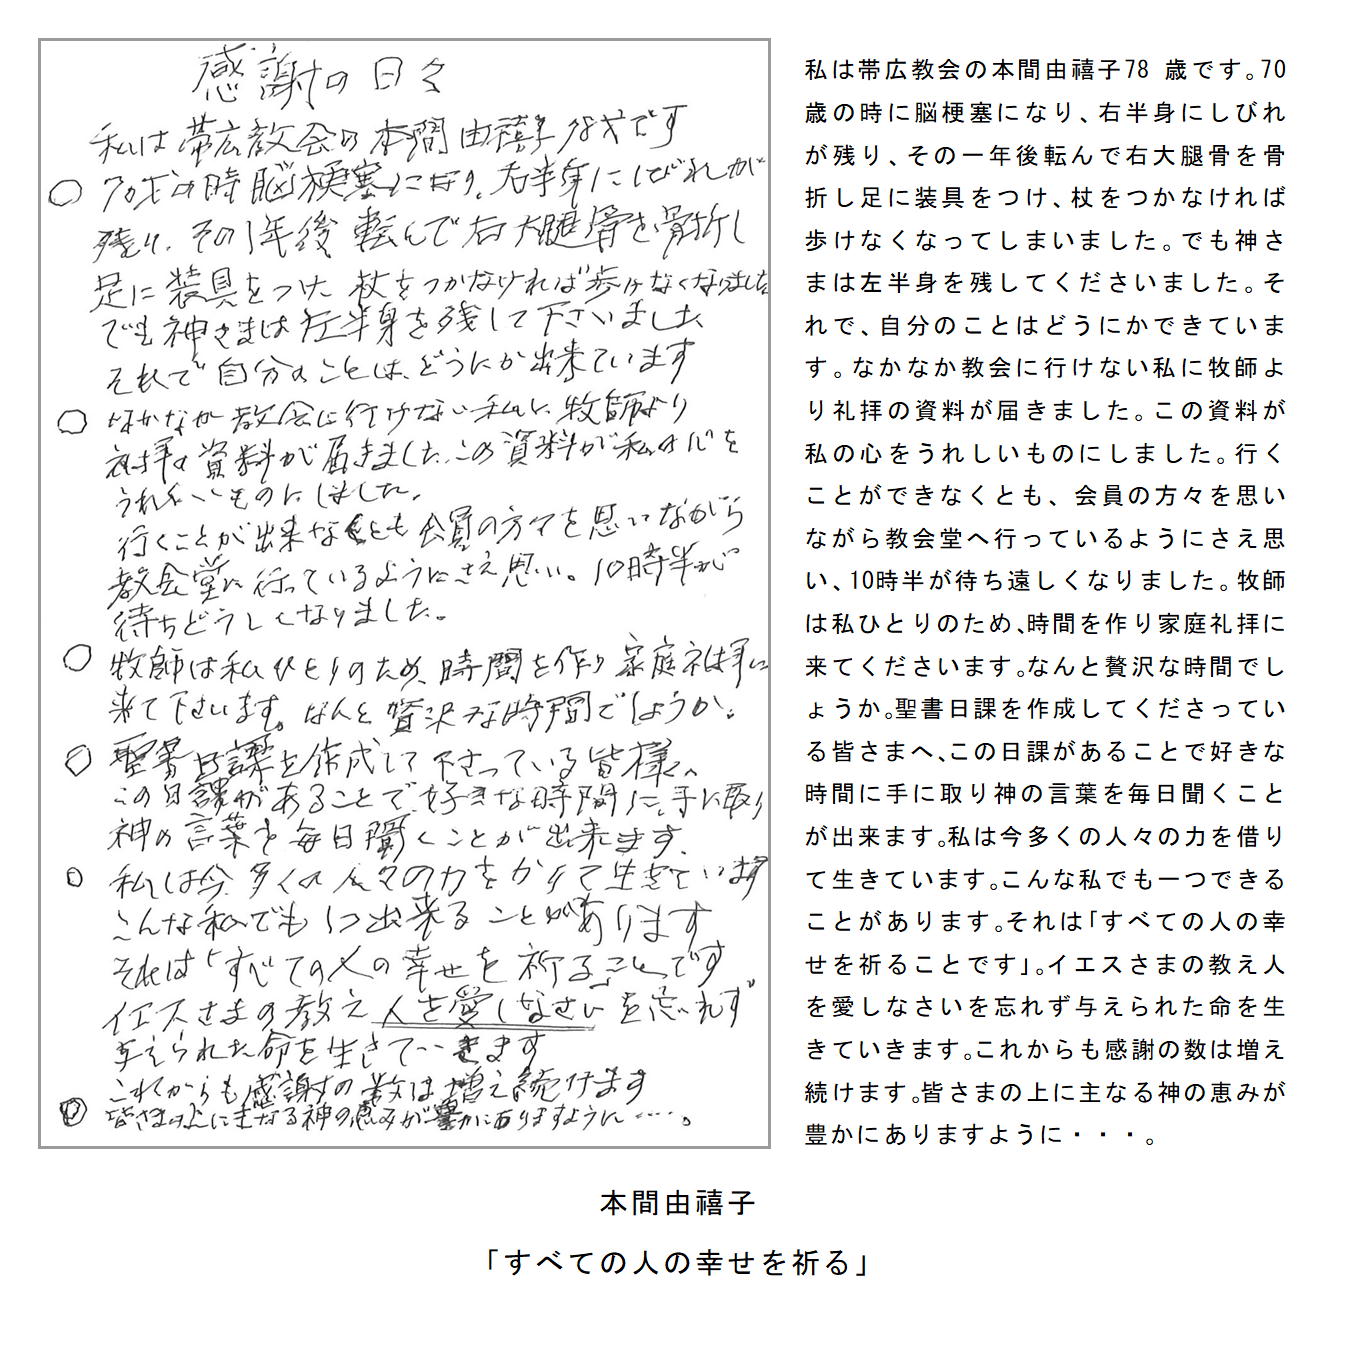 感謝の日々
私は帯広教会の本間由禧子78才です
○70才の時脳梗塞になり、右半身にしびれが
残り、その1年後転んで右大腿骨を骨折し
足に装具をつけ 杖をつかなければ歩けなくなりました
でも神さまは左半身を残して下さいました
それで自分のことは、どうにか出来ています
○なかなか教会に行けない私に、牧師より
礼拝の資料が届きました。この資料が私の心を
うれしいものにしました。
行くことが出来なくとも会員の方々を思いながら
教会堂に行っているようにさえ思い。10時半が
待ちどうしくなりました。
○牧師は私ひとりのため、時間を作り家庭礼拝に
来て下さいます。なんと贅沢な時間でしょうか。
○聖書日課を作成して下さっている皆様へ
この日課があることで、好きな時間に、手に取り
神の言葉を毎日聞くことが出来ます。
○私は今、多くの人々の力をかりて生きています
こんな私でも1つ出来ることがあります
それは「すべての人の幸せを祈ることです
イエスさまの教え人を愛しなさいを忘れず
与えられた命を生きていきます
これからも感謝の数は増え続けます
○皆さまの上に主なる神の恵みが豊かにありますように‥‥。
私は帯広教会の本間由禧子78 歳です。70
歳の時に脳梗塞になり、右半身にしびれ
が残り、その一年後転んで右大腿骨を骨
折し足に装具をつけ、杖をつかなければ
歩けなくなってしまいました。でも神さ
まは左半身を残してくださいました。そ
れで、自分のことはどうにかできていま
す。なかなか教会に行けない私に牧師よ
り礼拝の資料が届きました。この資料が
私の心をうれしいものにしました。行く
ことができなくとも、会員の方々を思い
ながら教会堂へ行っているようにさえ思
い、10時半が待ち遠しくなりました。牧師
は私ひとりのため、時間を作り家庭礼拝に
来てくださいます。なんと贅沢な時間でし
ょうか。聖書日課を作成してくださってい
る皆さまへ、この日課があることで好きな
時間に手に取り神の言葉を毎日聞くこと
が出来ます。私は今多くの人々の力を借り
て生きています。こんな私でも一つできる
ことがあります。それは「すべての人の幸
せを祈ることです」。イエスさまの教え人
を愛しなさいを忘れず与えられた命を生
きていきます。これからも感謝の数は増え
続けます。皆さまの上に主なる神の恵みが
豊かにありますように・・・。
本間由禧子
「すべての人の幸せを祈る」